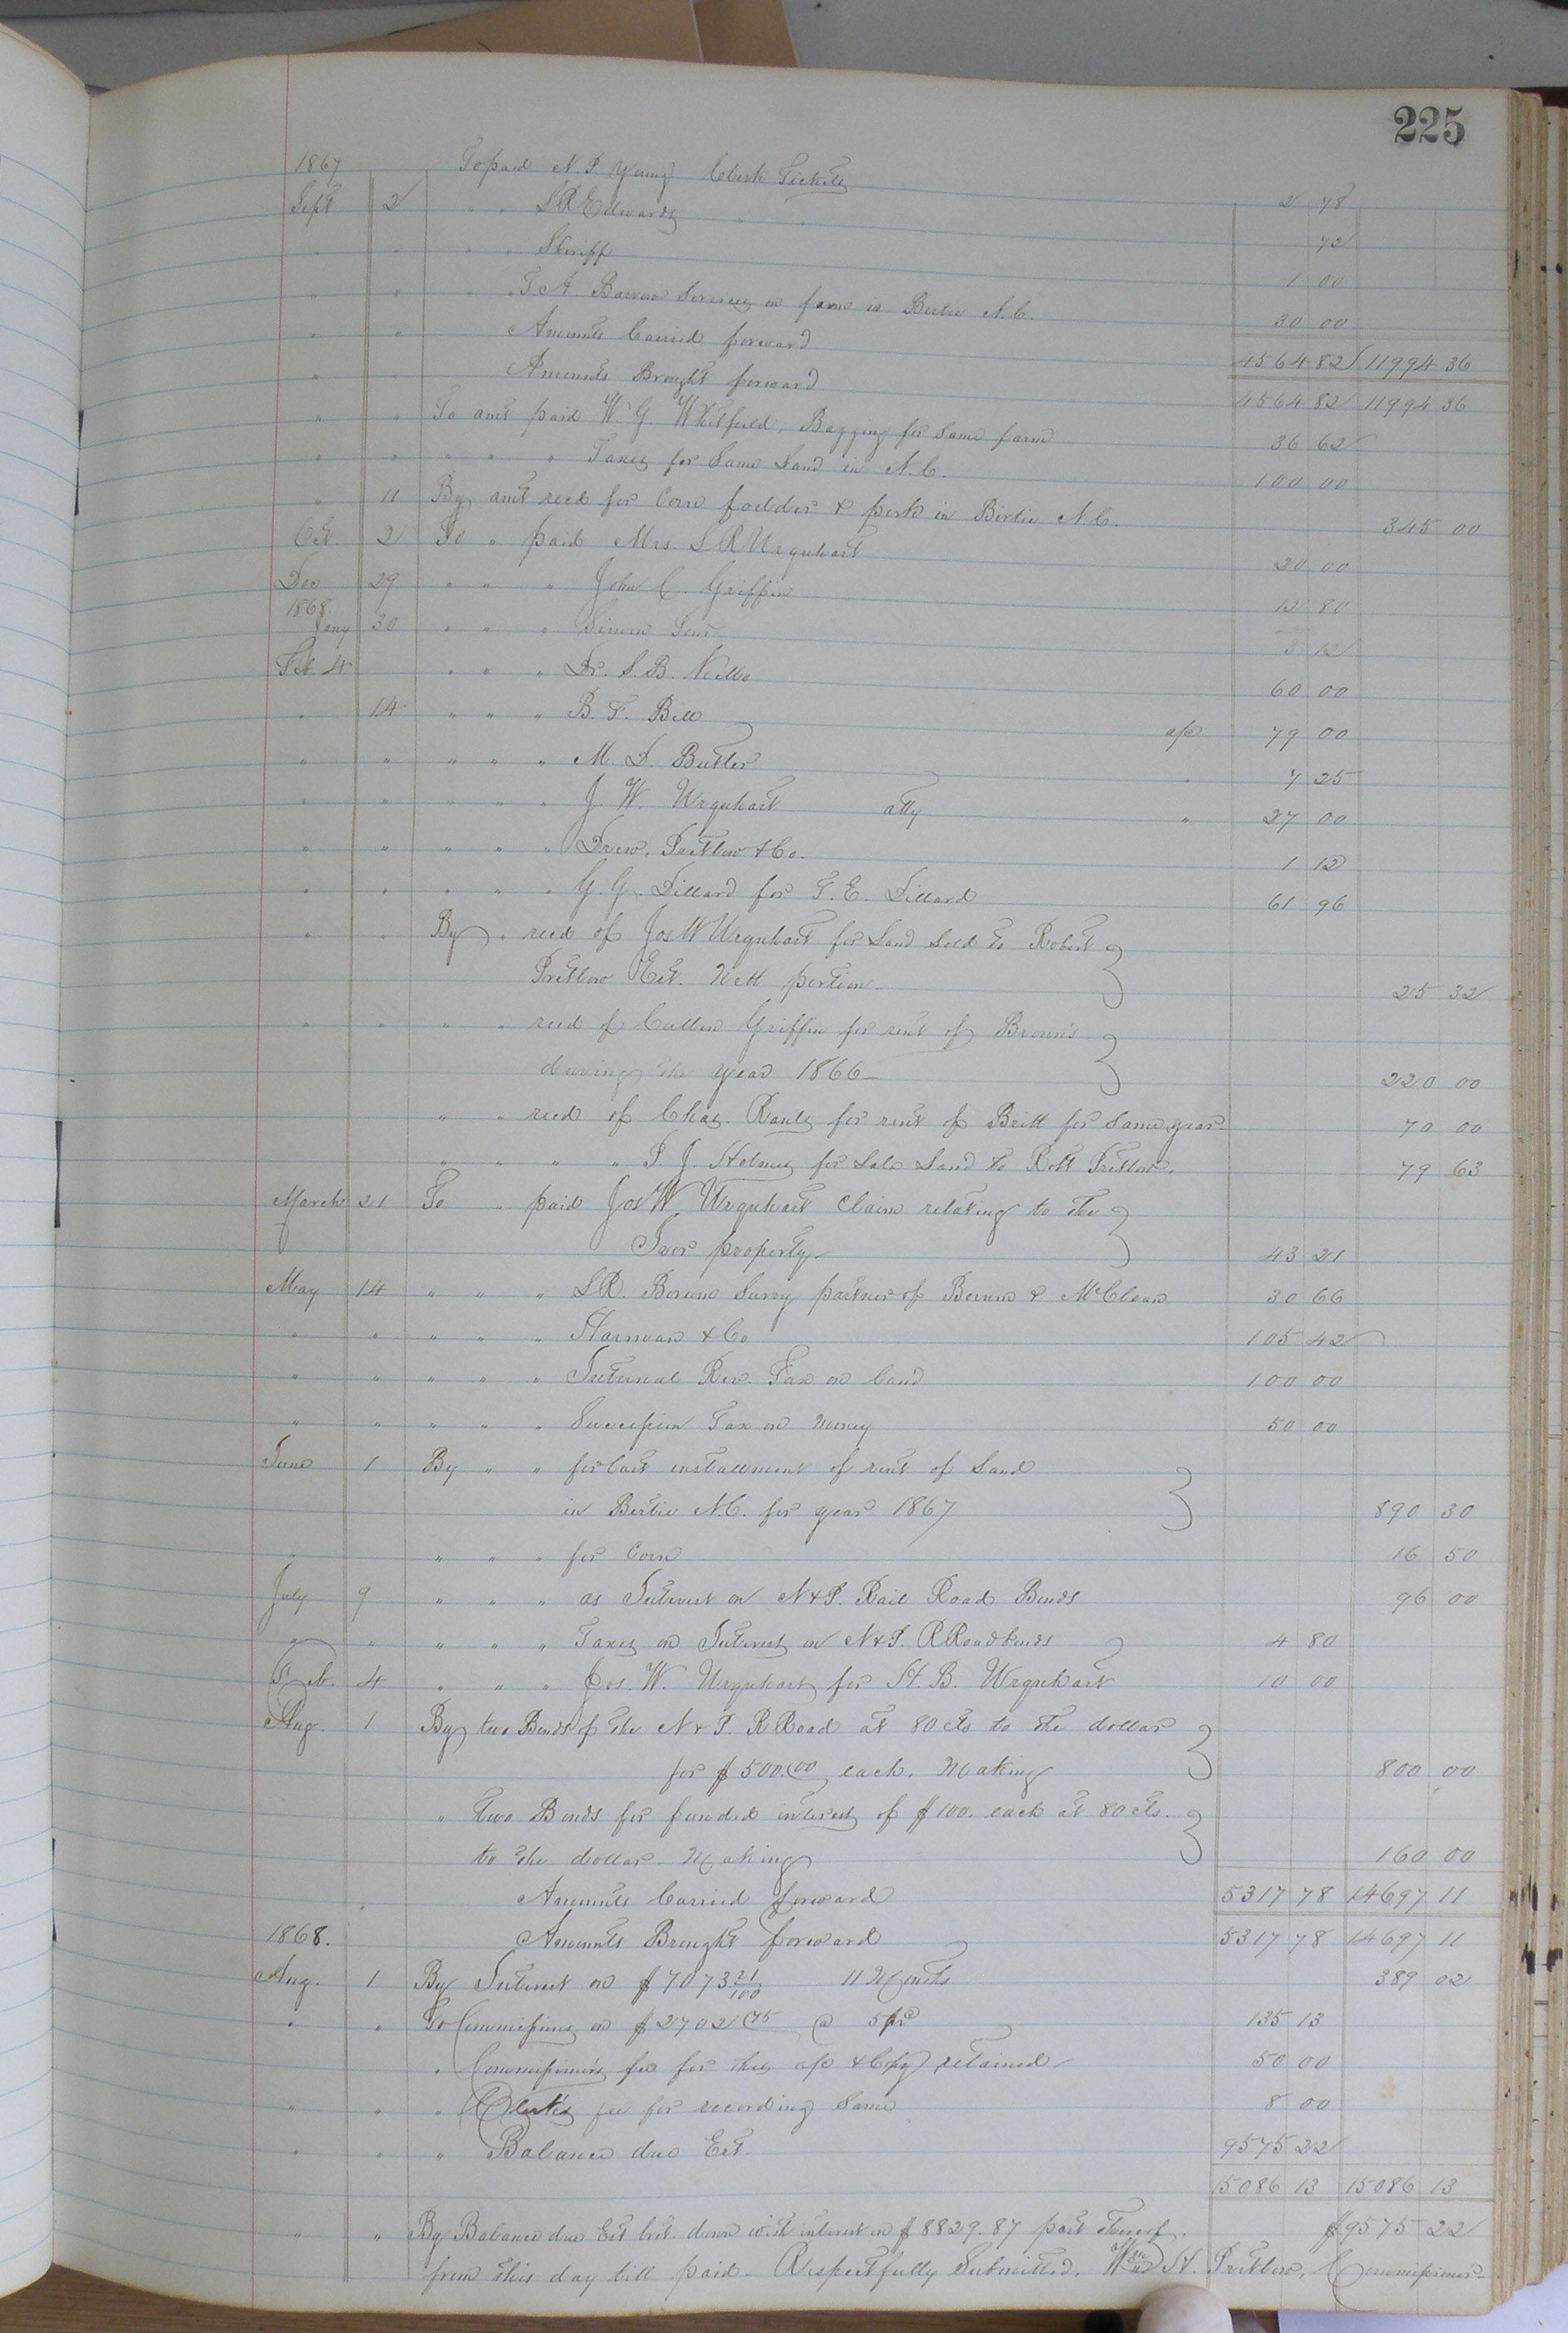 225
1867 To paid N P Young Clerk Tickets 2 78
Sept 2 " " L R Edwards " " 72
" " " " Sheriff 1 00
" " " " T. A. Services on farm in Bertie N.C. 30 00
" " Amounts Carried forward 4564 82 11994 36
" " Amounts Brought forward 4564 82 11994 36
" " To amt paid W. G. Whitfield, Bagging for Same farm 36 62
" " " " " Taxes for Same Land in N.C. 100 00
" 11 By amt recd for Corn fodder & pork in Bertie N.C. 345 00
Oct. 2 To " paid Mrs. S R Urquhart 20 00
Dec 29 " " " John C. Griffin 12 80
1868
Jany 30 " " " Simon 3 12
Feb 4 " " " Dr. S. B. 60 00
" 14 " " " B. F. Bell a/c 79 00
" " " " " M. D. Butler " 7 25
" " " " " J. W. Urquhart atty " 27 00
" " " " " Drew, Pretlow & Co. 1 12
" " " " " G. G. Dillard for T. E. Dillard 61 96
" " By " recd of Jos W Urquhart for Land Sold to Robert
Pretlow Est. Nett portion 25 32
" " " " recd of Cullen Griffin for rent of Brown's
during the year 1866 220 00
" " recd of Chas. for rent of Britt for Same year 70 00
" " " " P. J. Holmes for Sale Land to Robt Pretlow. 79 63
March 21 To " paid Jos W. Urquhart Claim relating to the
property 43 21
May 14 " " " S R. Borum Surv'g partner of Borum & McClean 30 66
" " " " " & Co 105 42
" " " " " Internal Rev. Tax on Land 100 00
" " " " " Succession Tax on Money 50 00
June 1 By " " for last installment of rent of Land
in Bertie N.C. for year 1867 890 30
" " " " for Corn 16 50
July 9 " " " as Interest on N & P. Rail Road Bonds 96 00
" " " " " Taxes on Interest on N & P. R Road bonds 4 80
Feb. 4 " " " Jos. W. Urquhart for H. B. Urquhart 10 00
Aug. 1 By two Bonds of the N & P. R Road at 80 cts to the dollar
for $500.00 each. Making 800 00
" two Bonds for funded interest of $100. each at 80 cts.
to the dollar. Making 160 00
Amounts Carried forward 5317 78 14697 11
1868. Amounts Brought forward 5317 78 14697 11
Aug. 1 By Interest on $7073 21/100 11 Months 389 02
" " To Commissions on $2702 75 @ 5 pr 135 13
" Commissioner's fee for this a/c & Copy retained 50 00
" " " Clerk's fee for recording Same 8 00
" " " Balance due Est. 9575 22
15086 13 15086 13
" " By Balance due Est brt. down with interest on $8829.87 part thereof. $9575 22
from this day till paid. Respectfully Submitted. Wm H. Pretlow, Commissioner